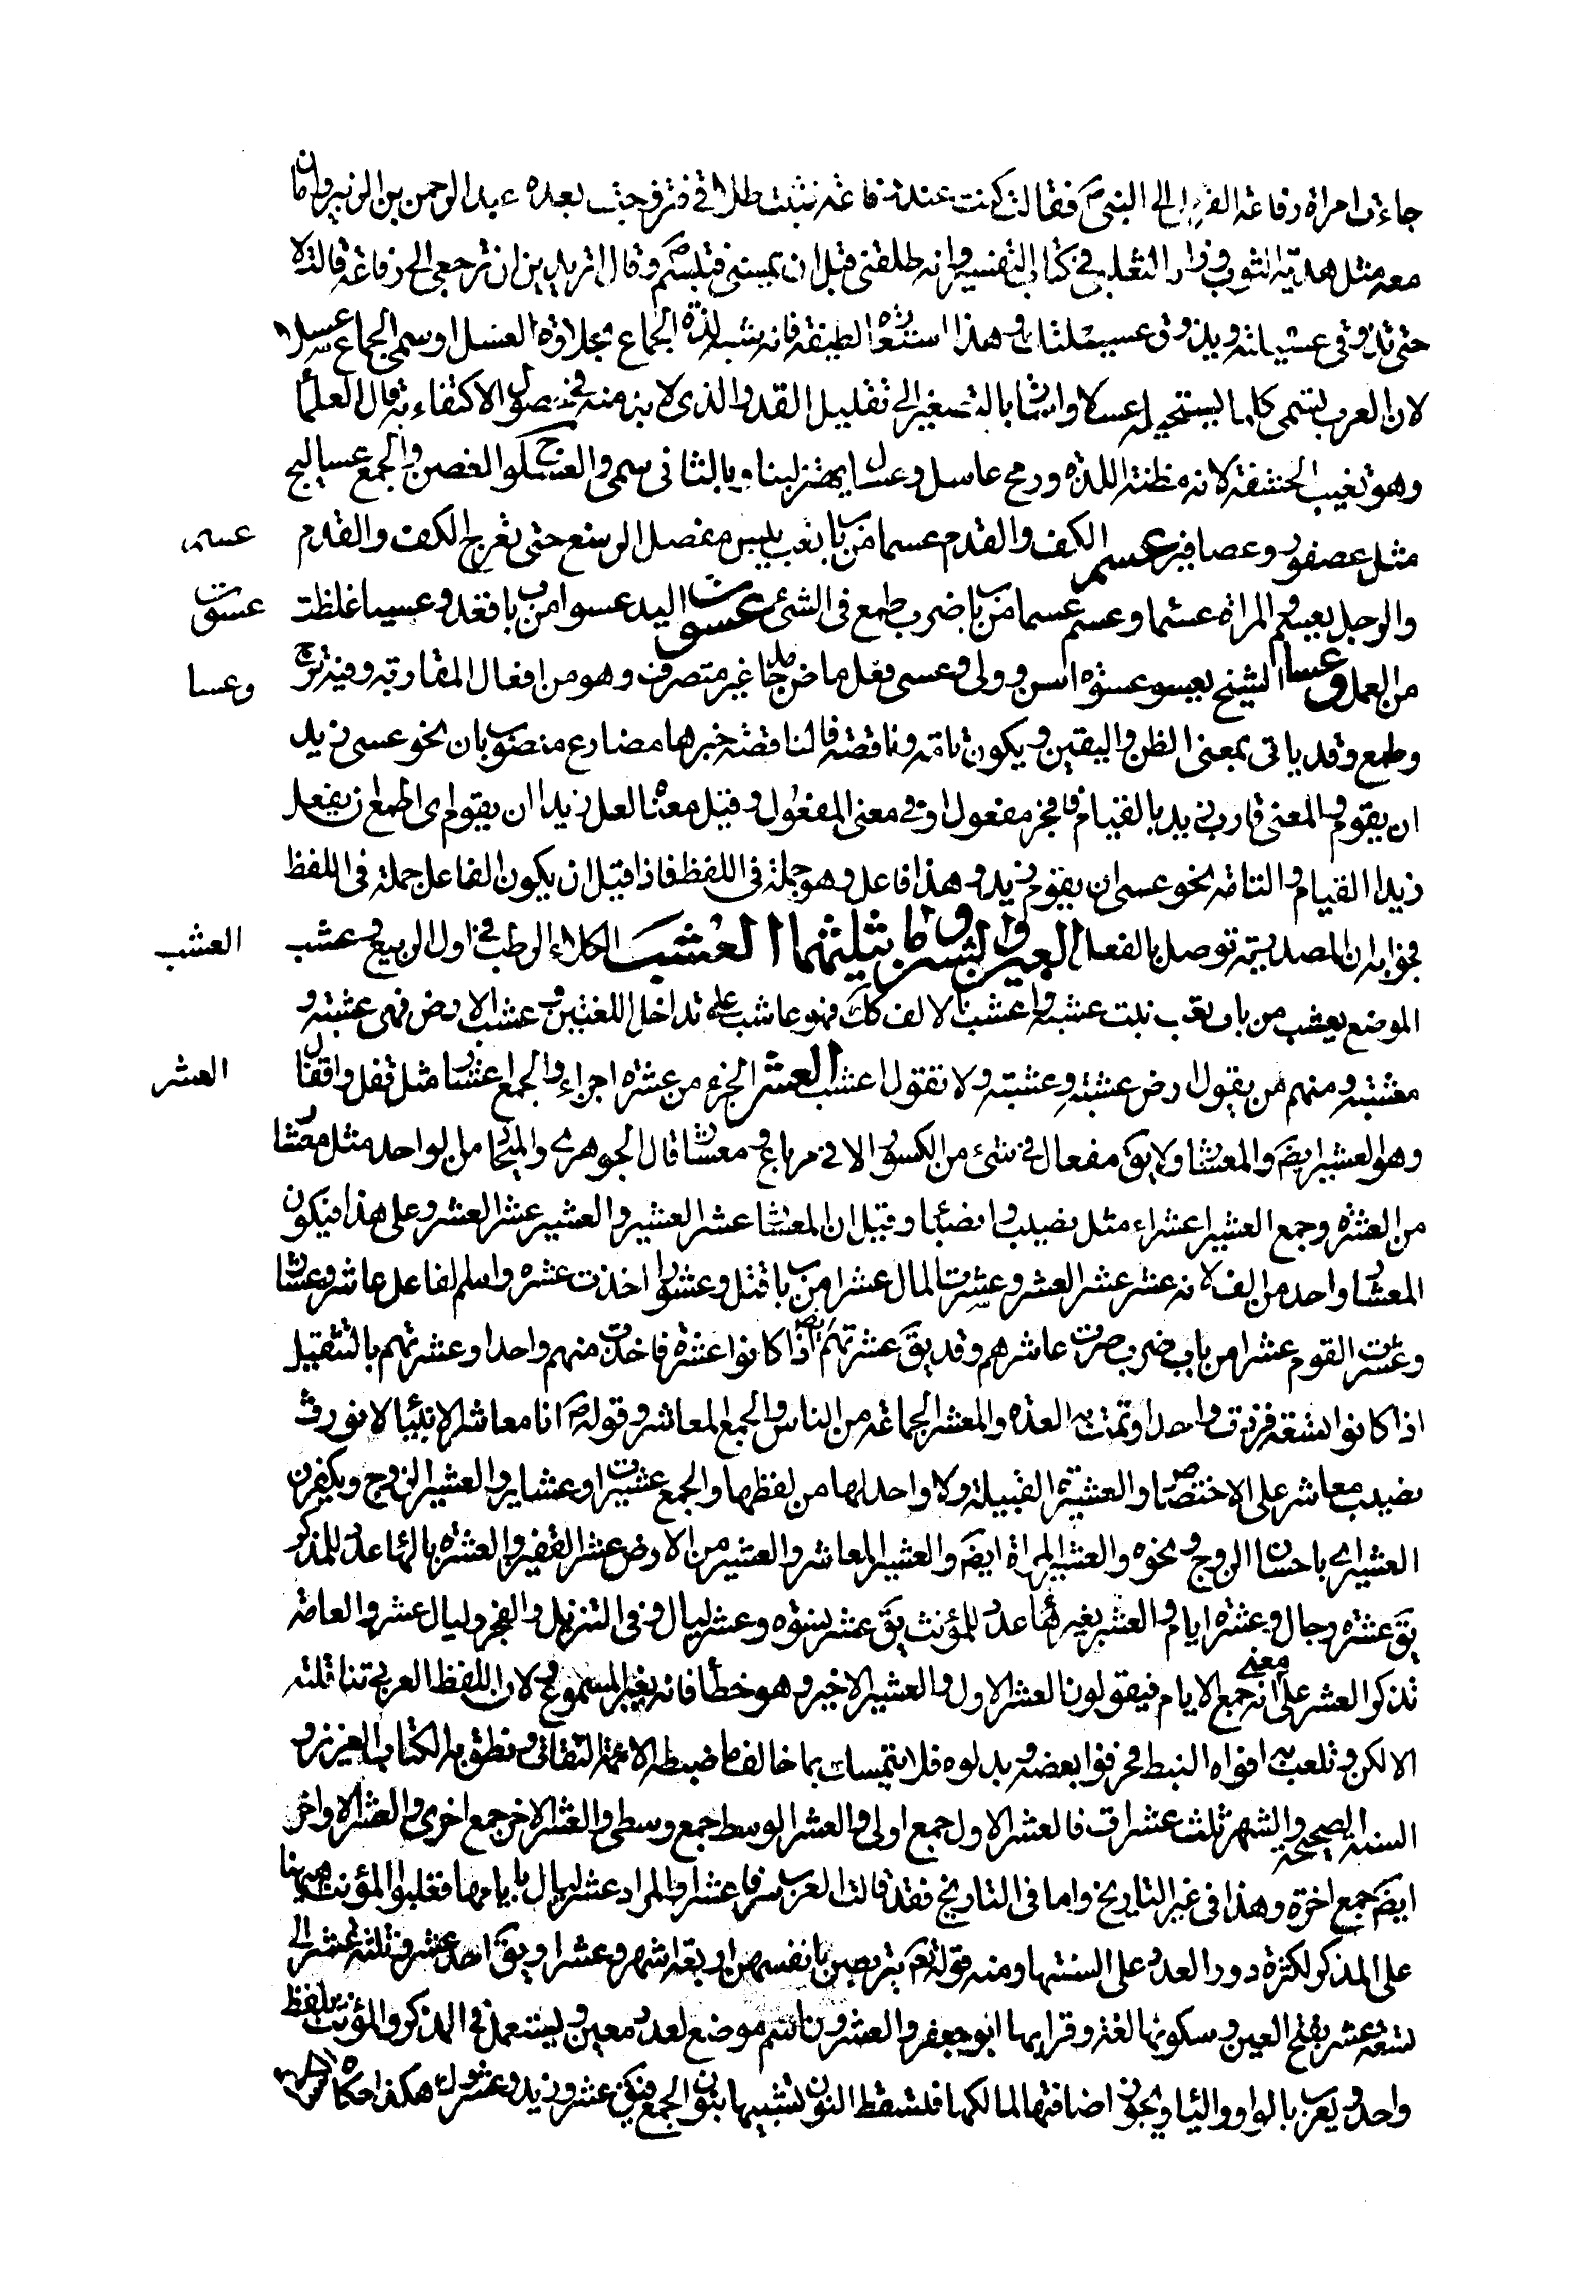 جاءت امراة رفاعة القرظى الى النبى ص فقالت كنت عند رفاعة فبت طلاقى فتزوجت بعده عبد الرحمن بن الزبير وان ما
معه مثل هدبة الثوب وزاد الثعلبى فى كتاب التفسير وانه طلقنى قبل ان يمسنى فتبسم ص وقال اتريدين ان ترجعى الى رفاعة قالت لا
حتى تذوقى عسيلته ويذوق عسيلتك وهذا استعارة لطيفة فانه شبه لذة الجماع بحلاوة العسل او سمى الجماع عسلا
لان العرب تسمى كل ما تستحليه عسلا واشار بالتصغير الى تقليل القدر الذى لا بد منه فى حصول الاكتفاء به قال العلماء
وهو تغييب الحشفة لانه مظنة اللذة ورمح عاسل وعسال يهتز لينا وبالثانى سمى والعسلوج الغصن والجمع عساليج
مثل عصفور وعصافير عسم الكف والقدم عسما من باب تعب يبس مفصل الرسغ حتى تعوج الكف والقدم
عسم
والرجل اعسم والمراة عسما وعسم عسما من باب ضرب طمع فى الشئ عسوت اليد عسوا من باب قعد وعسيا غلظت
عسوت
من العمل وعسا الشيخ يعسو عسوة اسن وولى وعسى فعل ماض جامد غير متصرف وهو من افعال المقاربة وفيه ترج
وعسا
وطمع وقد ياتى بمعنى الظن واليقين ويكون تامة وناقصة فالناقصة خبرها مضارع منصوب بان نحو عسى زيد
ان يقوم والمعنى قارب زيد بالقيام فالخبر مفعول او فى معنى المفعول وقيل معناه لعل زيدا ان يقوم اى اطمع ان يفعل
زيد القيام والتامة نحو عسى ان يقوم زيد وهذا فاعل وهو جملة فى اللفظ فاذا قيل ان يكون الفاعل جملة فى اللفظ
فجوابه ان المصدرية توصل بالفعل العين والشين وما يثلثهما العشب الكلاء الرطب فى اول الربيع وعشب
العشب
الموضع يعشب من باب تعب نبت عشبه واعشب بالالف كك فهو عاشب على تداخل اللغتين وعشب الارض فهى عشبة و
معشبة ومنهم من يقول ارض عشبة وعشبة ولا تقول اعشب العشر الجزء من عشرة اجزاء والجمع اعشار مثل قفل واقفال
العشر
وهو العشير ايض والمعشار ولا يق مفعال فى شئ من الكسور الا فى مرباع ومعشار قال الجوهرى والمعشار من الواحد مثل معشار
من العشرة وجمع العشير اعشراء مثل نصيب وانصباء وقيل ان المعشار عشر العشير والعشير عشر العشر وعلى هذا فيكون
المعشار واحد من الف لانه عشر عشر العشر وعشرت المال عشرا من باب قتل وعشورا اخذت عشره واسم الفاعل عاشر وعشار
وعشرت القوم عشرا من باب ضرب صرت عاشرهم وقد يق عشرتهم ايض اذا كانوا عشرة فاخذت منهم واحدا وعشرتهم بالتثقيل
اذا كانوا تسعة فزدت واحدا وتمت به العدة والمعشر الجماعة من الناس والجمع المعاشر وقوله ص انا معاشر الانبياء لا نورث
نصيب معاشر على الاختصاص والعشيرة القبيلة ولا واحد لها من لفظها والجمع عشيرات وعشاير والعشير الزوج ويكفرن
العشير اى باحسان الزوج ونحوه والعشير المراة ايض والعشير المعاشر والعشير من الارض عشر القفيز والعشرة بالهاء عدد للمذكر
يق عشرة رجال وعشرة ايام والعشر بغير هاء عدد للمؤنث يق عشر نسوة وعشر ليال وفى التنزيل والفجر وليال عشر والعامة
تذكر العشر على معنى انه جمع الايام فيقولون العشر الاول والعشر الاخير وهو خطأ فانه تغيير المسموع لان اللفظ العربى تناقلته
الالكن وتلعبت به افواه النبط فحرفوا بعضه وبدلوه فلا يتمسك بما خالف ما ضبطه الائمة الثقات ونطق به الكتاب العزيز و
السنة الصحيحة والشهر ثلث عشرات فالعشر الاول جمع اولى والعشر الوسط جمع وسطى والعشر الاخر جمع اخرى والعشر الاواخر
ايض جمع اخرة وهذا فى غير التاريخ واما فى التاريخ فقد قالت العرب سرنا عشرا والمراد عشر ليال بايامها فغلبوا المؤنث هيهنا
على المذكر لكثرة دور العدد على السنتها ومنه قوله تع يتربصن بانفسهن اربعة اشهر وعشرا ويق احد عشر وثلثة عشر الى
تسعة عشر بفتح العين وسكونها لغة وقرا بها ابو جعفر والعشرون اسم موضع لعدد معين ويستعمل فى المذكر والمؤنث بلفظ
واحد ويعرب بالواو والياء ويجوز اضافتها لمالكها فتسقط النون تشبيها بنون الجمع فيق عشرو زيد وعشروك هكذا حكاه